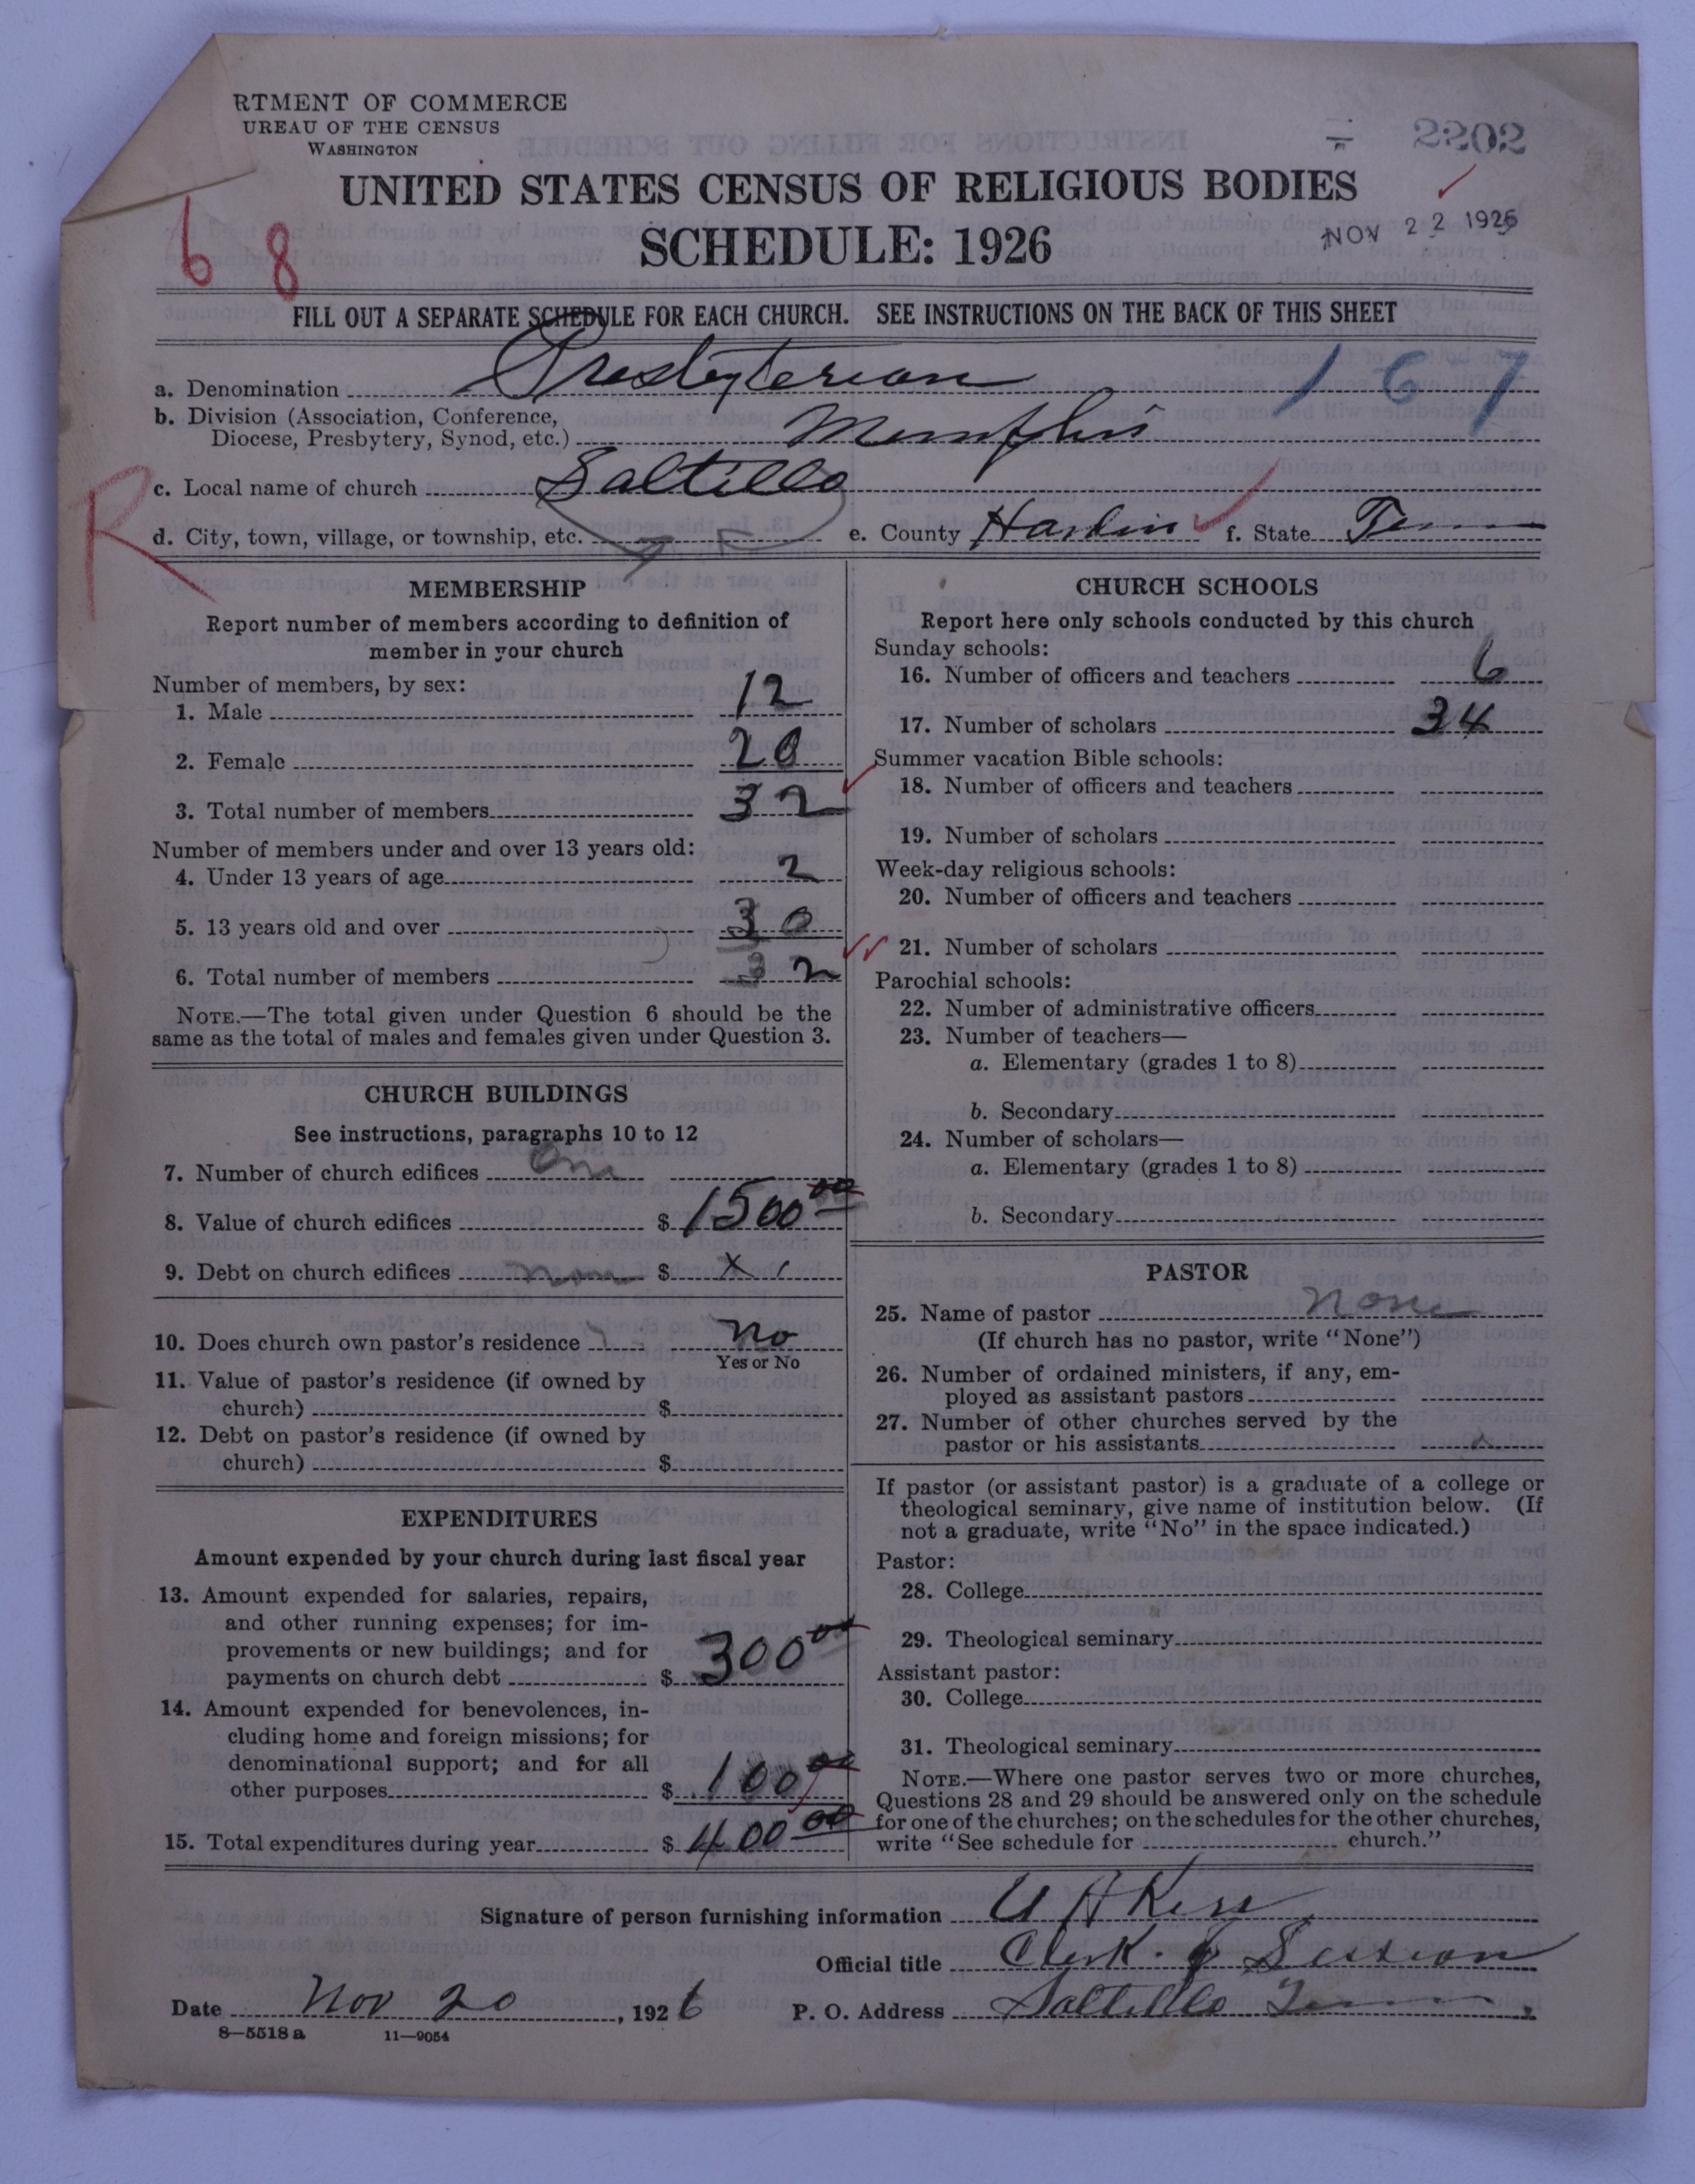 RTMENT OF COMMERCE
UREAU OF THE CENSUS
WASHINGTON
2202
UNITED STATES CENSUS OF RELIGIOUS BODIES
SCHEDULE: 1926
NOV 22 1926
68
FILL OUT A SEPARATE SCHEDULE FOR EACH CHURCH. SEE INSTRUCTIONS ON THE BACK OF THIS SHEET
a. Denomination Presbyterian 167
b. Division (Association, Conference,
Diocese, Presbytery, Synod, etc.) Memphis
c. Local name of church Saltillo
R
d. City, town, village, or township, etc. e. County Hardin f. State Tenn
MEMBERSHIP
Report number of members according to definition of
member in your church
Number of members, by sex:
1. Male 12
2. Female 20
3. Total number of members 32
Number of members under and over 13 years old:
4. Under 13 years of age 2
5. 13 years old and over 30
6. Total number of members 32
NOTE.—The total given under Question 6 should be the
same as the total of males and females given under Question 3.
CHURCH BUILDINGS
See instructions, paragraphs 10 to 12
7. Number of church edifices One
8. Value of church edifices $ 1500 00
9. Debt on church edifices none $ x
10. Does church own pastor's residence No
Yes or No
11. Value of pastor's residence (if owned by
church) $
12. Debt on pastor's residence (if owned by
church) $
EXPENDITURES
Amount expended by your church during last fiscal year
13. Amount expended for salaries, repairs,
and other running expenses; for im-
provements or new buildings; and for
payments on church debt $ 300 00
14. Amount expended for benevolences, in-
cluding home and foreign missions; for
denominational support; and for all
other purposes $ 100 00
15. Total expenditures during year $ 400 00
CHURCH SCHOOLS
Report here only schools conducted by this church
Sunday schools:
16. Number of officers and teachers 6
17. Number of scholars 34
Summer vacation Bible schools:
18. Number of officers and teachers
19. Number of scholars
Week-day religious schools:
20. Number of officers and teachers
21. Number of scholars
Parochial schools:
22. Number of administrative officers
23. Number of teachers—
a. Elementary (grades 1 to 8)
b. Secondary
24. Number of scholars—
a. Elementary (grades 1 to 8)
b. Secondary
PASTOR
25. Name of pastor none
(If church has no pastor, write "None")
26. Number of ordained ministers, if any, em-
ployed as assistant pastors
27. Number of other churches served by the
pastor or his assistants x
If pastor (or assistant pastor) is a graduate of a college or
theological seminary, give name of institution below. (If
not a graduate, write "No" in the space indicated.)
Pastor:
28. College
29. Theological seminary
Assistant pastor:
30. College
31. Theological seminary
NOTE.—Where one pastor serves two or more churches,
Questions 28 and 29 should be answered only on the schedule
for one of the churches; on the schedules for the other churches,
write "See schedule for church."
Signature of person furnishing information
Official title Clerk of Session
Date Nov 20, 1926 P. O. Address Saltillo Tenn
8—5518 a 11—9054